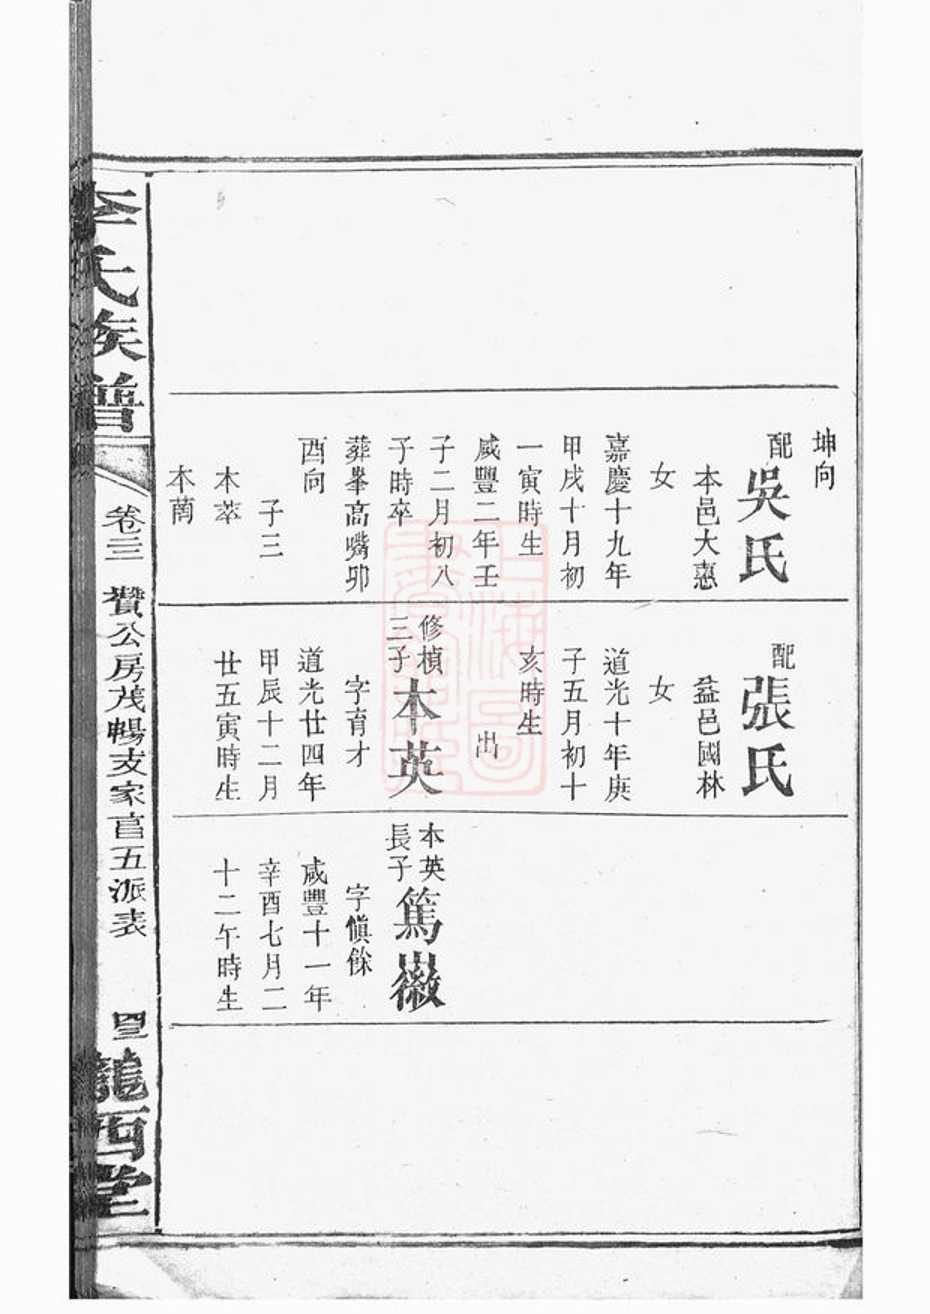 坤向
配吳氏
本邑大惪
女
嘉慶十九年
甲戌十月初
一寅時生
咸豐二年壬
子二月初八
子時卒
葬峯高嘴卯
酉向
子三
本萃
本萳
配張氏
益邑國林
女
道光十年庚
子五月初十
亥時生
出
修楨
三子
本英
字育才
道光廿四年
甲辰十二月
廿五寅時生
本英
長子
篤嶶
字慎餘
咸豐十一年
辛酉七月二
十二午時生
李氏族譜
卷三
贊公房茂暢支家官五派表
隴西堂